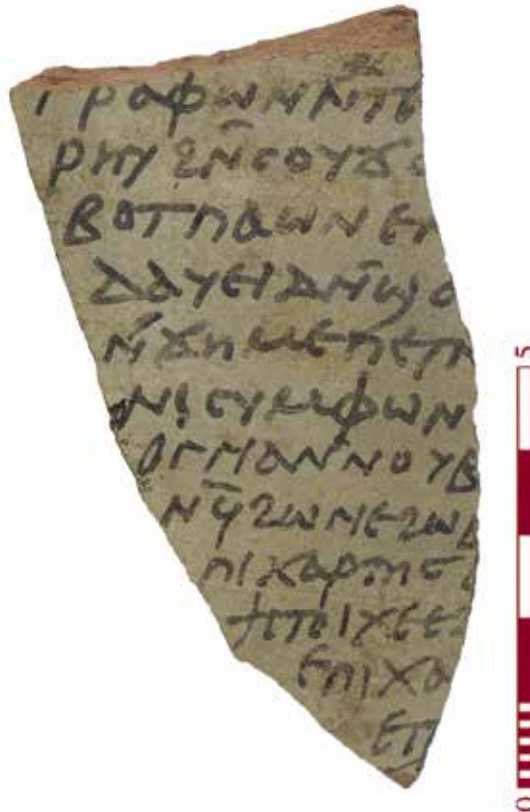 ⲅⲣⲁⲫⲱⲛⲛ̄ⲧⲉ
ⲣⲏⲩϩⲛ̄ⲥⲟⲩϫⲟ
ⲃⲟⲧⲡⲁⲱⲛⲉⲡ
ⲇⲁⲩⲉⲓⲇⲛ̄ϣⲟ
ⲛ̄ϫⲏⲙⲉⲡⲉⲧⲛ
ⲛⲓⲥⲩⲙⲫⲱⲛ
ⲟⲅⲓⲁⲛ̄ⲛⲟⲩⲃ
ⲛϥ̄ϩⲱⲛⲉϩⲱⲃ
ⲡⲓⲭⲁⲣⲧⲏⲥ
ϯⲥⲧⲟⲓⲭⲉⲉ
ⲉⲡⲓⲭⲁ
ⲉⲡ